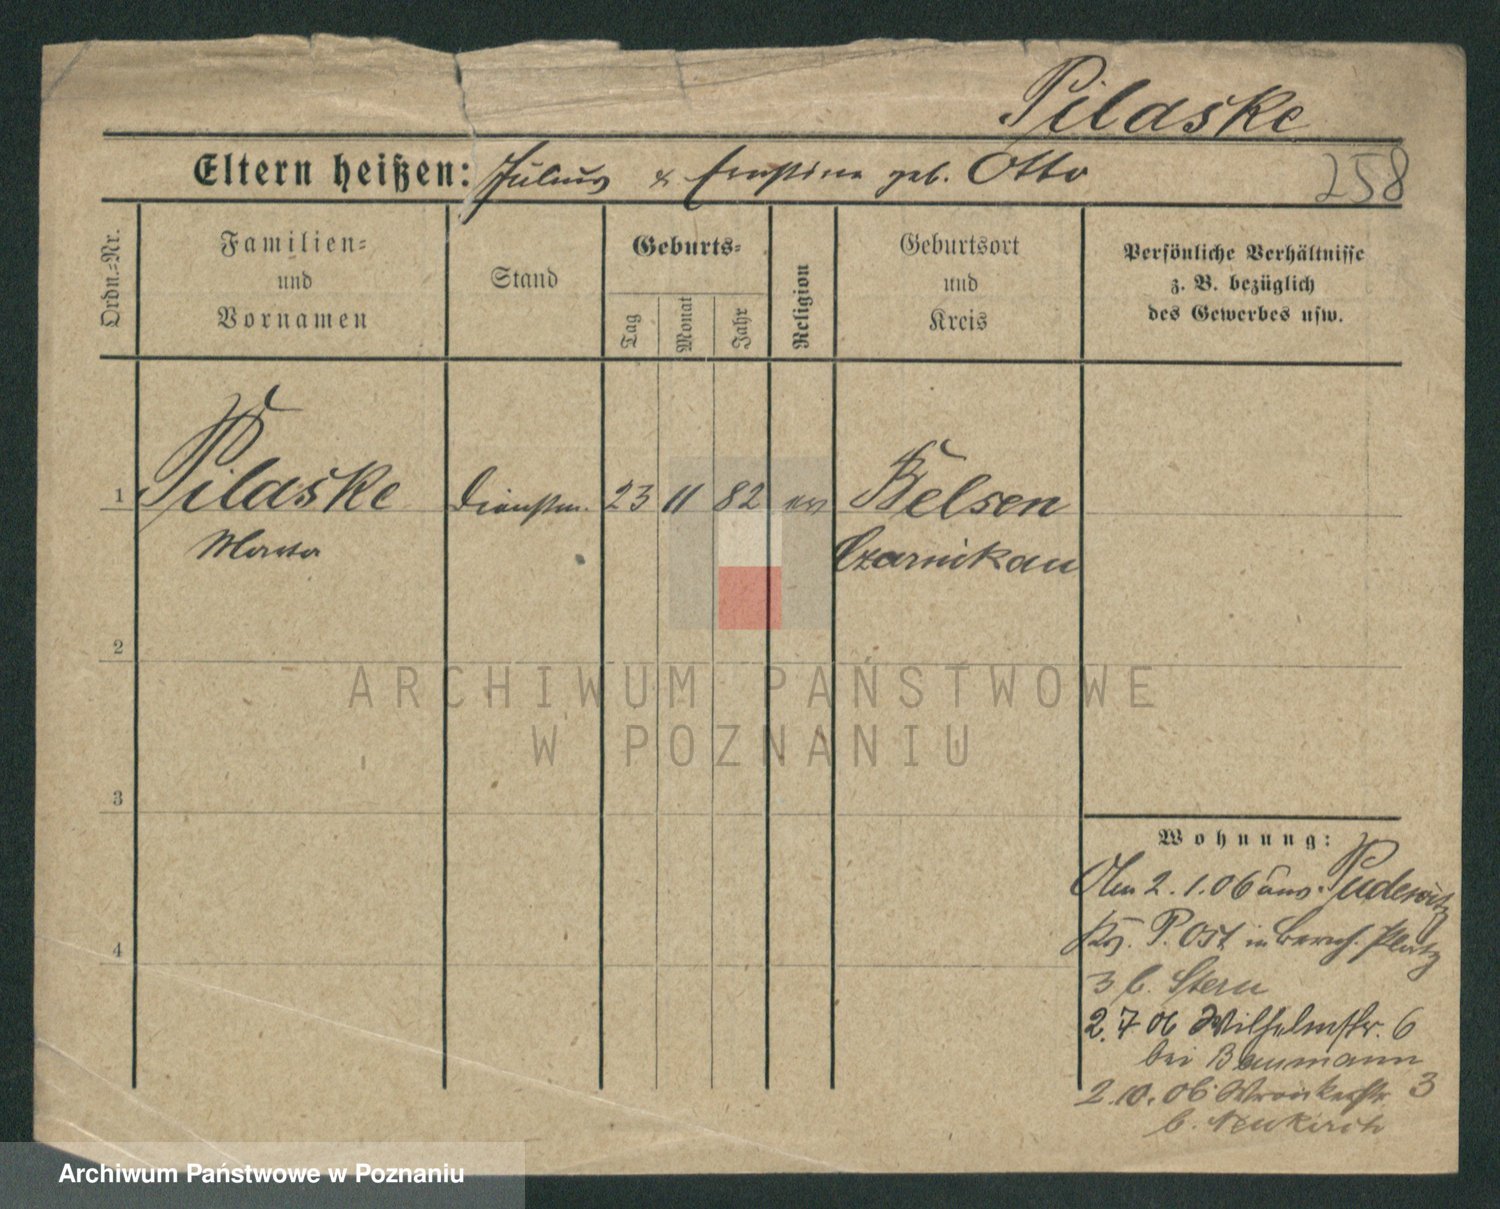 Pilaske
Eltern heißen: Julius & Ernstine geb. Otto
258
Ordn.-Nr.
Familien-
und
Vornamen
Stand
Geburts-
Tag
Monat
Jahr
Religion
Geburtsort
und
Kreis
Persönliche Verhältnisse
z. B. bezüglich
des Gewerbes usw.
1 Pilaske Dienstm. 23 11 82 ev Belsen
Marta Czarnikau
2
ARCHIWUM PAŃSTWOWE
W POZNANIU
3
Wohnung:
Am 2.1.06 Pudewitz
4
P. Ost in Platz
3 b. Stern
2.7 06 Wilhelmstr. 6
bei Baumann
2.10.06 Wronkerstr 3
b. Neukirch
Archiwum Państwowe w Poznaniu